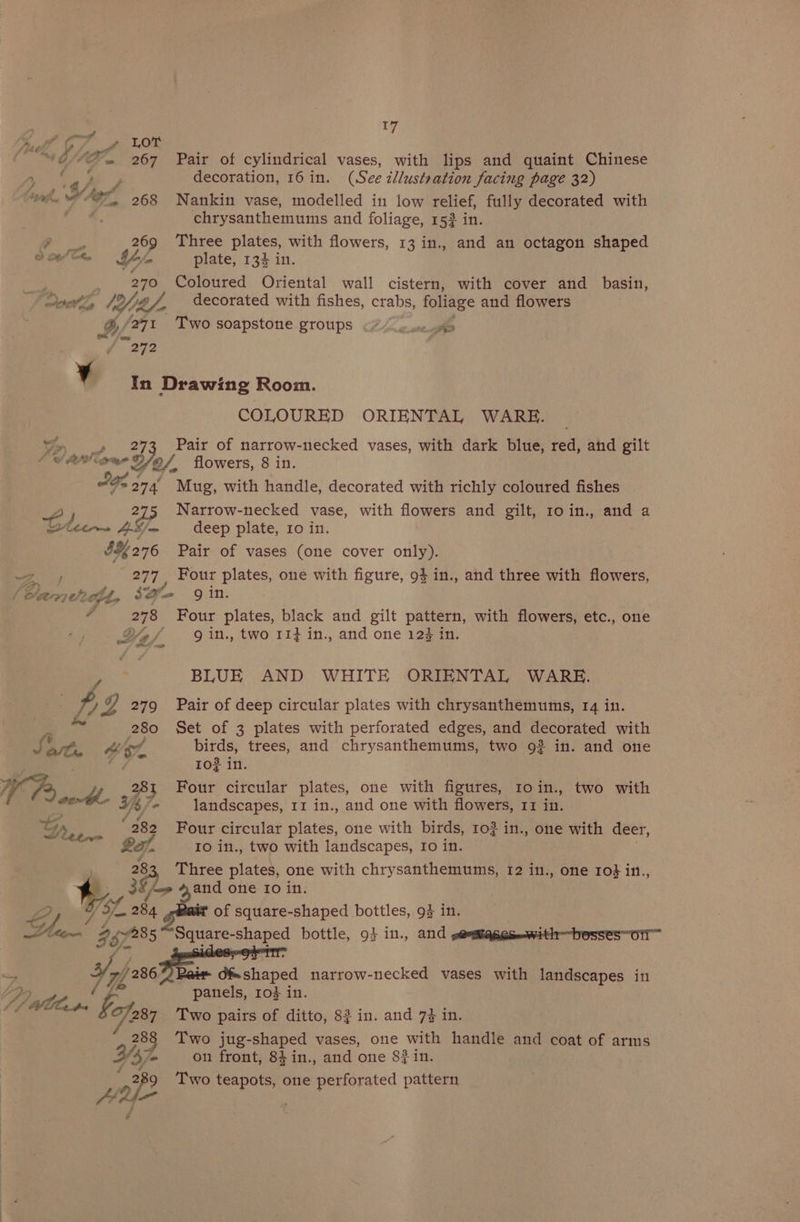 17
LOT
267 Pair of cylindrical vases, with lips and quaint Chinese
decoration, 16 in. (See illustration facing page 32)
268 Nankin vase, modelled in low relief, fully decorated with
chrysanthemums and foliage, 15¾ in.
269 Three plates, with flowers, 13 in., and an octagon shaped
plate, 13½ in.
270 Coloured Oriental wall cistern, with cover and basin,
decorated with fishes, crabs, foliage and flowers
271 Two soapstone groups
272
In Drawing Room.
COLOURED ORIENTAL WARE.
273 Pair of narrow-necked vases, with dark blue, red, and gilt
flowers, 8 in.
274 Mug, with handle, decorated with richly coloured fishes
275 Narrow-necked vase, with flowers and gilt, 10 in., and a
deep plate, 10 in.
276 Pair of vases (one cover only).
277 Four plates, one with figure, 9½ in., and three with flowers,
9 in.
278 Four plates, black and gilt pattern, with flowers, etc., one
9 in., two 11½ in., and one 12½ in.
BLUE AND WHITE ORIENTAL WARE.
279 Pair of deep circular plates with chrysanthemums, 14 in.
280 Set of 3 plates with perforated edges, and decorated with
birds, trees, and chrysanthemums, two 9¾ in. and one
10¾ in.
281 Four circular plates, one with figures, 10 in., two with
landscapes, 11 in., and one with flowers, 11 in.
282 Four circular plates, one with birds, 10¾ in., one with deer,
10 in., two with landscapes, 10 in.
283 Three plates, one with chrysanthemums, 12 in., one 10½ in.,
and one 10 in.
284 Pair of square-shaped bottles, 9½ in.
285 Square-shaped bottle, 9½ in., and with bosses on
sides, 9½ in.
286 Pair of shaped narrow-necked vases with landscapes in
panels, 10½ in.
287 Two pairs of ditto, 8¾ in. and 7½ in.
288 Two jug-shaped vases, one with handle and coat of arms
on front, 8½ in., and one 8¾ in.
289 Two teapots, one perforated pattern